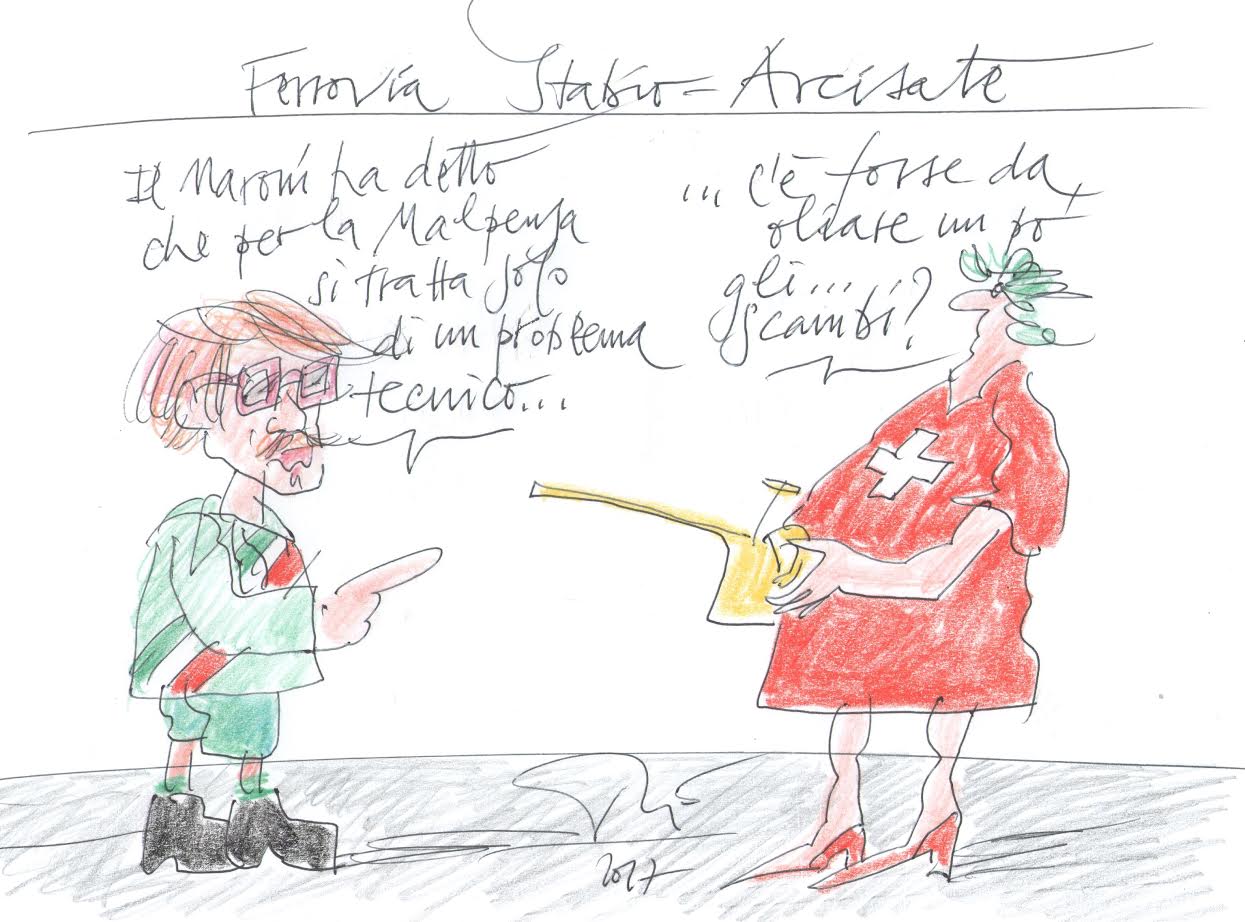 Ferrovia Stabio-Arcisate
Il Maroni ha detto
che per la Malpensa
si tratta solo
di un problema
tecnico...
... c'è forse da
oliare un pò
gli...
scambi?
2017